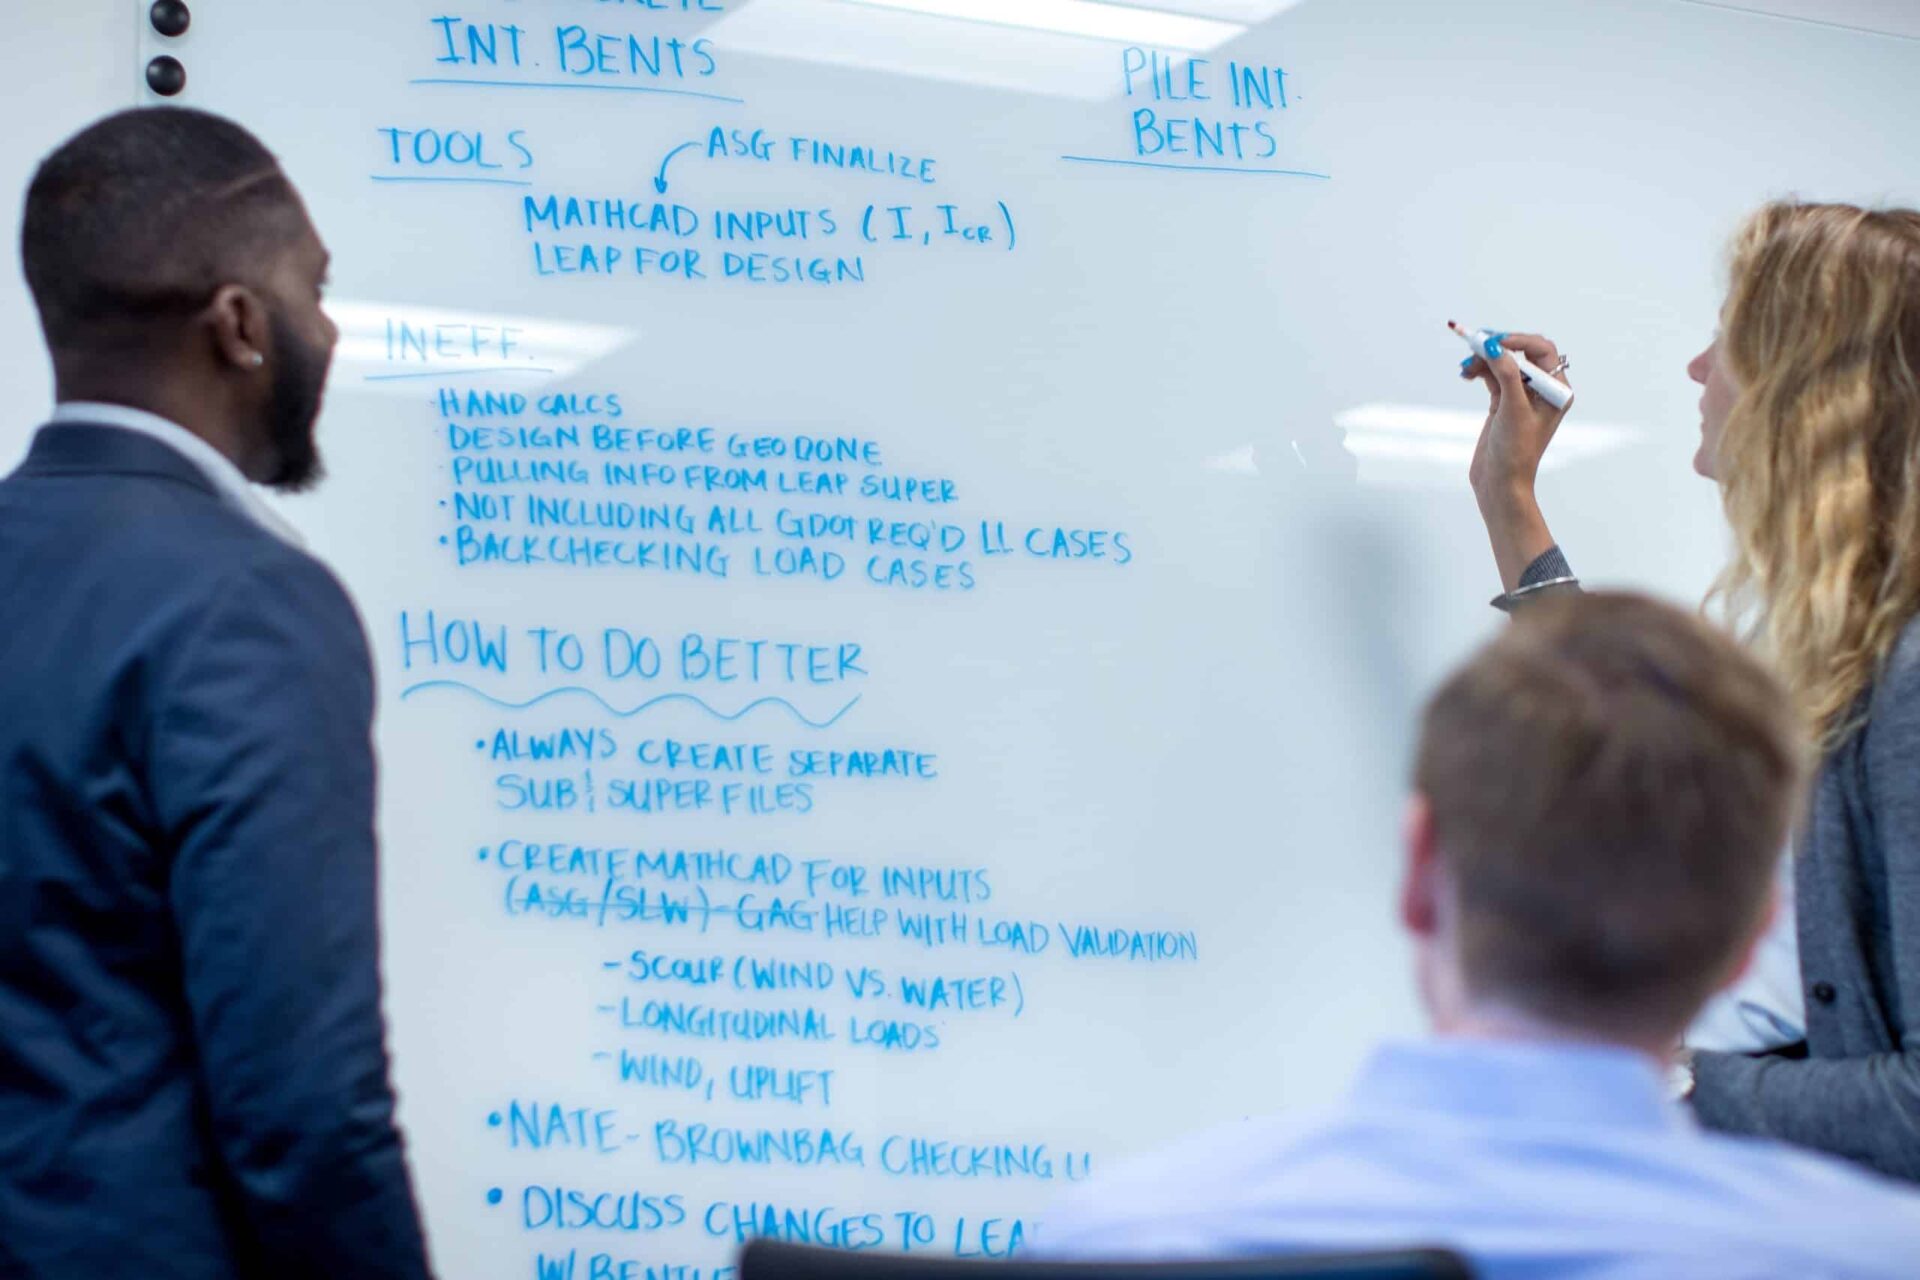 INT. BENTS
TOOLS
ASG FINALIZE
MATHCAD INPUTS (I, ICR)
LEAP FOR DESIGN
INEFF.
·HAND CALCS
·DESIGN BEFORE GEO DONE
·PULLING INFO FROM LEAP SUPER
·NOT INCLUDING ALL GDOT REQ'D LL CASES
·BACKCHECKING LOAD CASES
HOW TO DO BETTER
·ALWAYS CREATE SEPARATE
SUB & SUPER FILES
·CREATE MATHCAD FOR INPUTS
(ASG/SLW)-GAG HELP WITH LOAD VALIDATION
-SCOUR (WIND VS. WATER)
-LONGITUDINAL LOADS
-WIND, UPLIFT
·NATE-BROWNBAG CHECKING
·DISCUSS CHANGES TO
W/
PILE INT.
BENTS